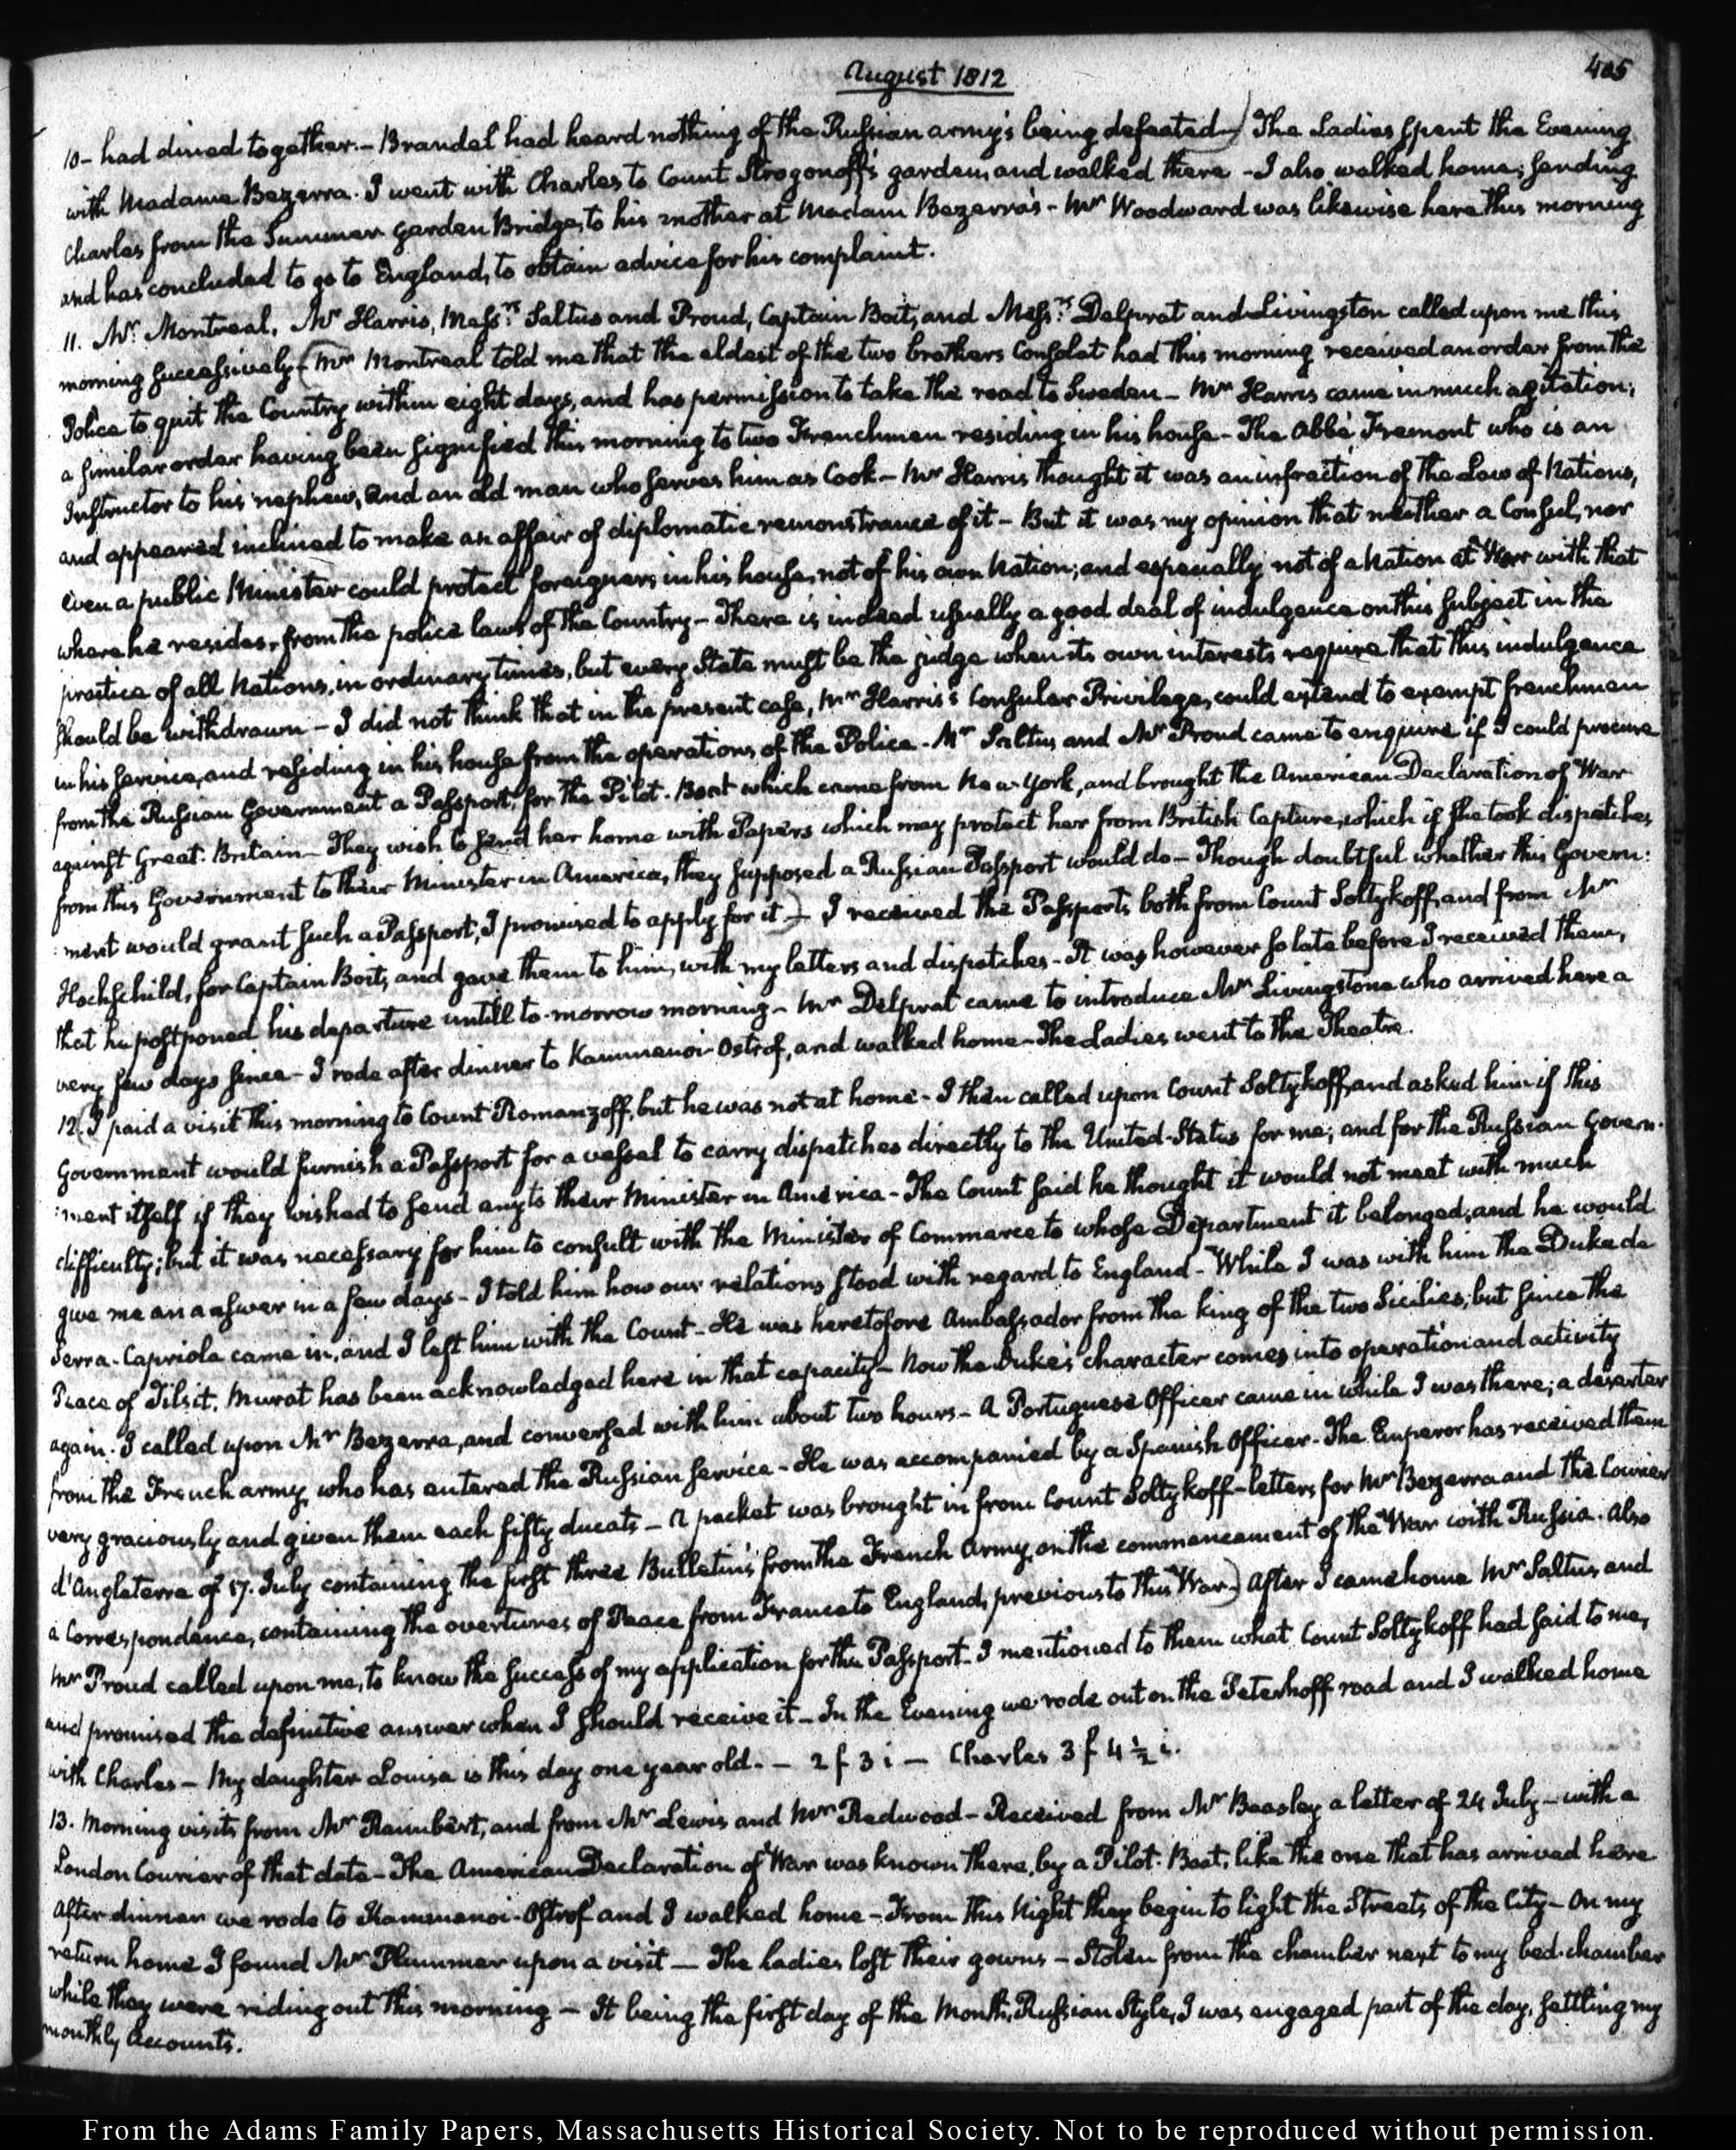 August 1812
405
10- had dined together.- Brandel had heard nothing of the Russian army's being defeated-) The Ladies spent the Evening
with Madame Bezerra. I went with Charles to Count Strogonoff's garden, and walked there - I also walked home; sending
Charles from the Summer Garden Bridge, to his mother at Madam Bezerra's - Mr Woodward was likewise here this morning
and has concluded to go to England, to obtain advice for his complaint.
11. Mr Montreal, Mr Harris, Messrs Saltus and Proud, Captain Boit, and Messrs Delprat and Livingston called upon me this
morning successively- (Mr Montreal told me that the eldest of the two brothers Consolat had this morning received an order from the
Police to quit the Country within eight days, and has permission to take the road to Sweden - Mr Harris came in much agitation;
a similar order having been signified this morning to two Frenchmen residing in his house - The Abbé Fremont who is an
Instructor to his nephew, and an old man who serves him as Cook - Mr Harris thought it was an infraction of the Law of Nations,
and appeared inclined to make an affair of diplomatic remonstrance of it - But it was my opinion that neither a Consul, nor
even a public Minister could protect foreigners in his house, not of his own Nation; and especially not of a Nation at War with that
where he resides, from the police laws of the Country - There is indeed usually a good deal of indulgence on this subject in the
practice of all Nations, in ordinary times, but every State must be the judge when its own interests require that this indulgence
should be withdrawn - I did not think that in the present case, Mr Harris's Consular Privilege, could extend to exempt frenchmen
in his service, and residing in his house from the operations of the Police - Mr Saltus and Mr Proud came to enquire if I could procure
from the Russian Government a Passport, for the Pilot-Boat which came from New-York, and brought the American Declaration of War
against Great-Britain - They wish to send her home with Papers which may protect her from British Capture, which if she took dispatches
from this Government to their Minister in America, they supposed a Russian Passport would do - Though doubtful whether this Govern:
:ment would grant such a Passport, I promised to apply for it -) I received the Passports both from Count Soltykoff, and from Mr
Hochschild, for Captain Boit, and gave them to him, with my letters and dispatches - It was however so late before I received them,
that he postponed his departure untill to-morrow morning - Mr Delprat came to introduce Mr Livingstone who arrived here a
very few days since - I rode after dinner to Kammenoi-Ostrof, and walked home - The Ladies went to the Theatre.
12. (I paid a visit this morning to Count Romanzoff, but he was not at home - I then called upon Count Soltykoff, and asked him if this
Government would furnish a Passport for a vessel to carry dispatches directly to the United-States for me; and for the Russian Govern:
:ment itself if they wished to send any to their Minister in America - The Count said he thought it would not meet with much
difficulty; but it was necessary for him to consult with the Minister of Commerce to whose Department it belonged, and he would
give me an answer in a few days - I told him how our relations stood with regard to England - While I was with him the Duke de
Serra-Capriola came in, and I left him with the Count - He was heretofore Ambassador from the king of the two Sicilies, but since the
Peace of Tilsit, Murat has been acknowledged here in that capacity - Now the Duke's character comes into operation and activity
again. I called upon Mr Bezerra, and conversed with him about two hours - A Portuguese Officer came in while I was there; a deserter
from the French army, who has entered the Russian service - He was accompanied by a Spanish Officer - The Emperor has received them
very graciously and given them each fifty ducats - A packet was brought in from Count Soltykoff - letters for Mr Bezerra and the Courier
d'Angleterre of 17. July containing the first three Bulletins from the French Army, on the commencement of the War with Russia. Also
a Correspondence, containing the overtures of Peace from France to England, previous to this War -) After I came home Mr Saltus and
Mr Proud called upon me, to know the success of my application for the Passport - I mentioned to them what Count Soltykoff had said to me,
and promised the definitive answer when I should receive it - In the Evening we rode out on the Peterhoff road and I walked home
with Charles - My daughter Louisa is this day one year old. - 2 f 3 i - Charles 3 f 4 ½ i.
13. Morning visits from Mr Raimbert, and from Mr Lewis and Mr Redwood - Received from Mr Beasley a letter of 24 July - with a
London Courier of that date - The American Declaration of War was known there, by a Pilot-Boat, like the one that has arrived here
After dinner we rode to Kammenoi-Ostrof and I walked home - From this Night they begin to light the Streets of the City - On my
return home I found Mr Plummer upon a visit - The Ladies lost their gowns - Stolen from the chamber next to my bed-chamber
while they were riding out this morning - It being the first day of the Month, Russian Style, I was engaged part of the day, settling my
monthly Accounts.
From the Adams Family Papers, Massachusetts Historical Society. Not to be reproduced without permission.